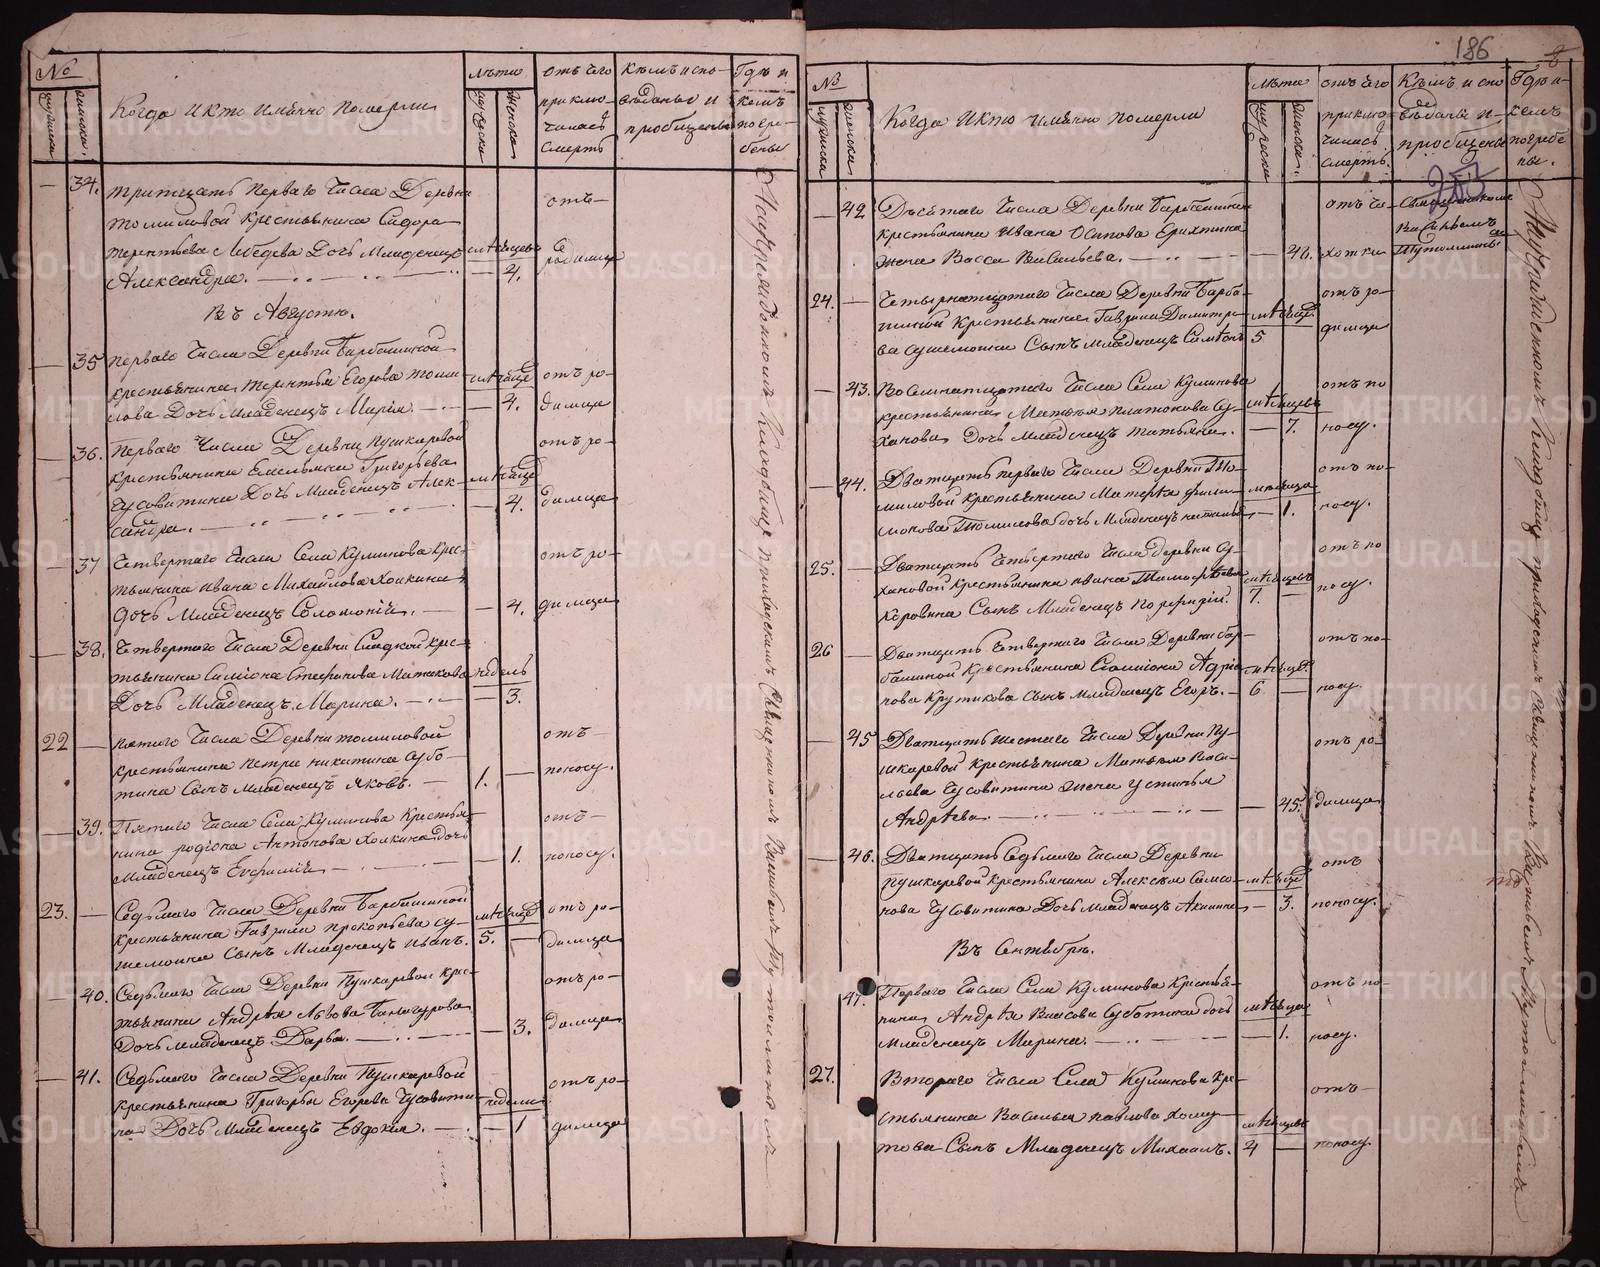 №
мужеска
женска.
Когда и кто имянно померли
лета
мужеска
женска
отъ чего приклю-
чилась
смерть
кемъ испо-
веданы и
приобщены
Где и
кемъ
погре-
бены
34. тритцать перваго числа Деревни
Томиловой крестьянина Сидора
Терентьева Лебедева Дочь Младенецъ
Александра.
месяцевъ
4.
отъ
родимца
Въ Августе.
35 перваго числа Деревни Барабашиной
крестьянина Терентья Егорова Томи-
лова Дочь Младенецъ Мария.
месяце
4.
отъ ро-
димца
36. Перваго числа Деревни Пушкаревой
крестьянина Емельяна Григорьева
Чусовитина Дочь Младенецъ Алек-
сандра.
месяце
4.
отъ ро-
димца
37 Четвертаго числа Села Куминова крес-
тьянина Ивана Михайлова Холкина
Дочь Младенецъ Соломония.
4.
отъ ро-
димца
38. Четвертаго числа Деревни Сладкой крес-
тьянина Симиона Стефанова Матакова
Дочь Младенецъ Марина.
недель
3.
22 пятаго числа Деревни Томиловой
крестьянина Петра Никитина Субо-
тина Сынъ Младенецъ Яковъ.
1.
отъ
поносу.
39. Пятаго числа Села Куминова крестья-
нина Родиона Антонова Холкина Дочь
Младенецъ Евфимия
1.
отъ
поносу.
23. Седьмаго числа Деревни Барабашиной
крестьянина Гаврила Прокопьева Су-
шемоина Сынъ Младенецъ Иванъ.
месяце
5.
отъ ро-
димца
40. Седьмаго числа Деревни Пушкаревой крес-
тьянина Андрея Львова
Дочь младенецъ Дарья.
3.
отъ ро-
димца
41. Седьмаго числа Деревни Пушкаревой
крестьянина Григорья Егорова Чусовити-
на Дочь Младенецъ Евдокия.
недели
1
отъ ро-
димца
На приходскомъ кладбище приходскимъ Священникомъ Василиемъ Тутолминымъ
186
№
мужеска
женска
Когда и кто имянно померли
лета
мужеска
женска.
отъ чего
приклю-
чилась
смерть.
Кемъ и спо
веданы и
приобщены
Где и
кемъ
погребе
ны.
285
42 Десятаго числа Деревни Барабашиной
крестьянина Ивана Осипова
жена Васса Васильева.
40.
отъ ча-
хотки
Священникомъ
Василиемъ
Тутолминымъ
24. Четырнатцатаго числа Деревни Бараба-
шиной крестьянина Гаврила Димитрие-
ва Сушемоина Сынъ младенецъ Симеонъ
месяце
5
отъ ро-
димца
43. Восемнатцатаго числа Села Куминова
крестьянина Матвея Платонова Су-
ханова Дочь младенецъ Татьяна.
месяцевъ
7.
отъ по
носу.
44. Дватцать перваго числа Деревни То-
миловой крестьянина Матвея Фили-
монова Томилова дочь Младенецъ Наталья
месяца
1.
отъ по-
носу.
25. Дватцать четвертаго числа деревни Су-
хановой крестьянина Ивана Тимофеева
Коровина Сынъ Младенецъ Порфирий.
месяцевъ
7.
отъ по
носу.
26 Дватцать четвертаго числа Деревни Бар-
башиной крестьянина Симиона Адриа-
нова Крутикова сынъ младенецъ Егоръ.
месяцевъ
6
отъ по-
носу
45 Дватцать шестаго числа Деревни Пу-
шкаревой крестьянина Матвея Васи-
льева Чусовитина жена Устинья
Андреева.
45.
отъ ро-
димца
46. Дватцать Седьмаго числа Деревни
Пушкаревой крестьянина Алексея Симо-
нова Чусовитина Дочь младенецъ Акилина
месяце
3.
отъ
поносу.
Въ Сентябре.
47. Перваго числа Села Куминова крестья-
нина Андрея Власова Суботина дочь
Младенецъ Марина.
месяца
1.
отъ по-
носу.
27. Втораго числа Села Куминова кре-
стьянина Василья Павлова Хому-
това Сынъ Младенецъ Михаилъ.
месяцевъ
4
отъ
поносу.
На приходскомъ кладбище приходскимъ священникомъ Василиемъ Тутолминымъ
METRIKI.GASO-URAL.RU